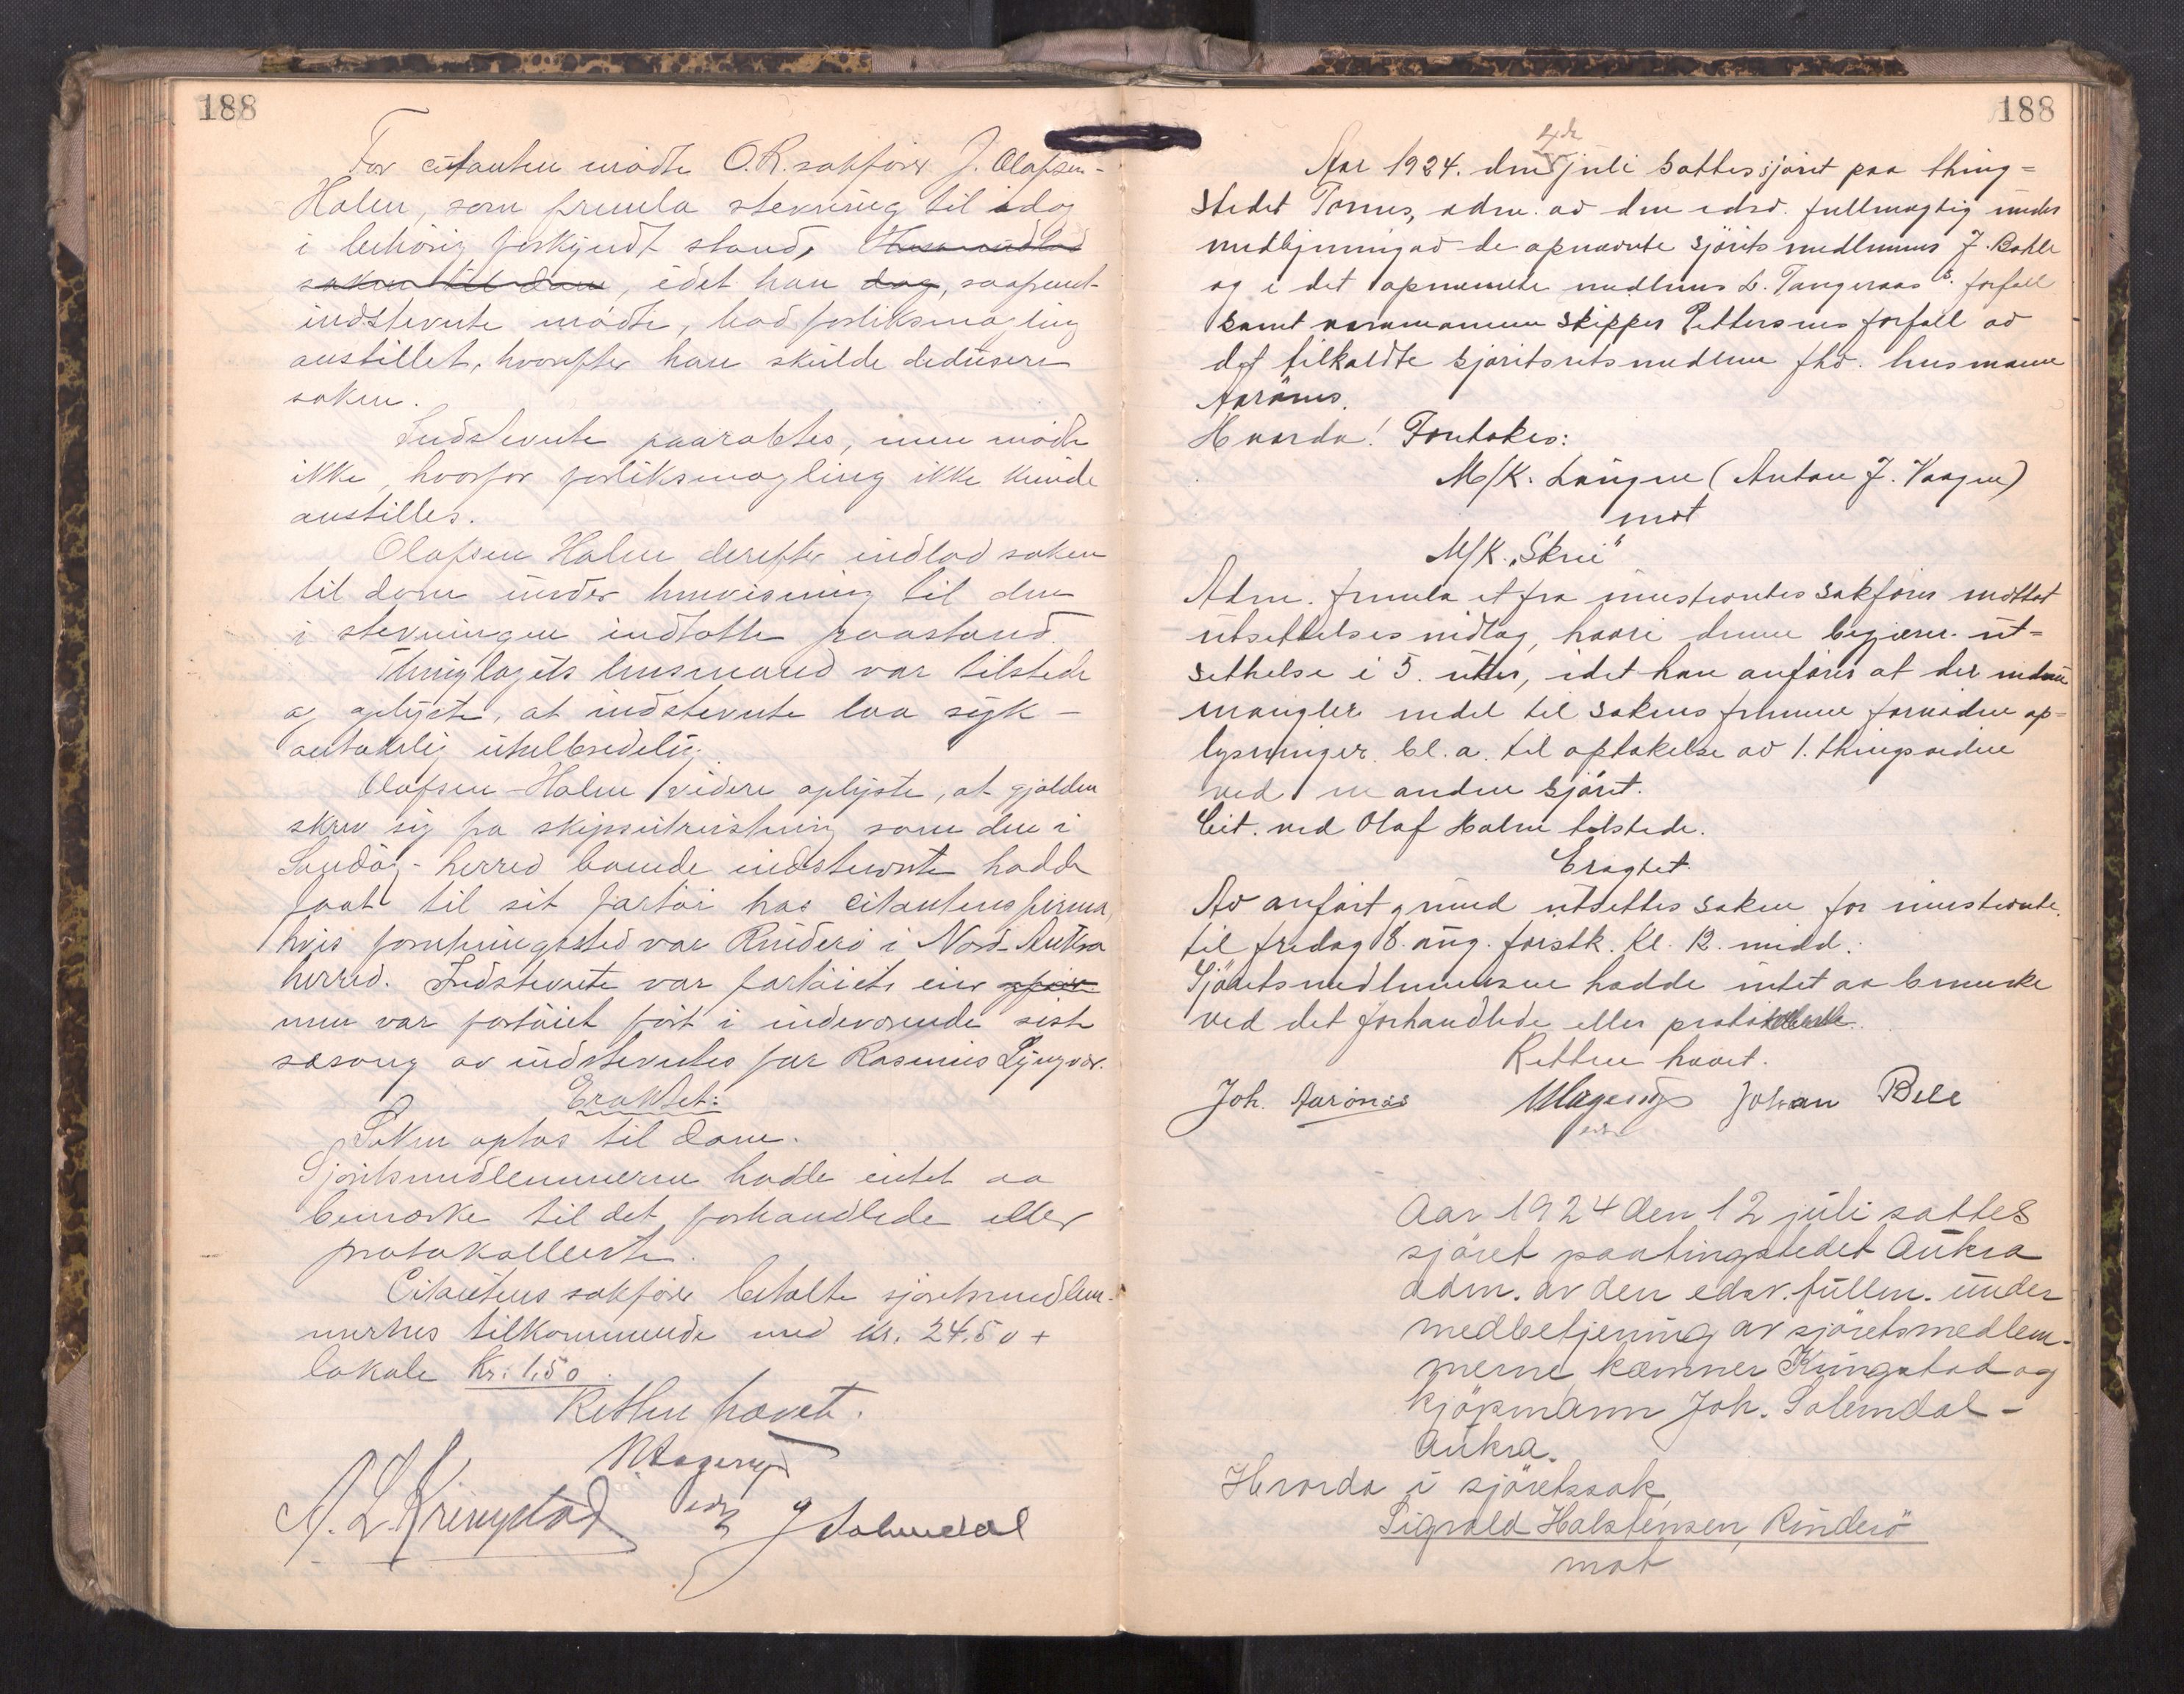 188
For citanten mödte O.R. sakförer J. Olafsen-
Holm, som fremla stevning til idag
i behörig forkyndt stand,
saken til dom, idet han dog, saafremt
indstevnte mödte, bad forliksmægling
anstillet, hvorefter han skulde dedusere
saken.
Indstevnte paaroptes, men mödte
ikke, hvorfor forliksmægling ikke kunde
anstilles.
Olafsen Holm derefter indlod saken
til dom under henvisning til den
i stevningen indtatte paastand.
Thinglagets lensmand var tilstede
og oplyste, at indstevnte laa syk -
antakelig uhelbredelig.
Olafsen-Holm videre oplyste, at gjælden
skrev sig fra skipsutrustning som den i
Sandöy-herred boende indstevnte hadde
faat til sit fartöi hos citantens firma,
hvis forretningssted var Rinderö i Nord-Aukra
herred. Indstevnte var fartöiets eier
men var fartöiet fört i indeværende siste
sæsong av indstevntes far Rasmus Lyngvær.
Eraktet:
Saken optas til dom.
Sjöretsmedlemmerne hadde intet aa
bemærke til det forhandlede eller
protokollerte.
Citantens sakförer betalte sjöretsmedlem-
mernes tilkommende med kr. 24.50 +
lokale kr. 1.50.
Retten hævet.
M Hagerup
edsv
A. L. Kringstad J Solemdal
188
4de
Aar 1924. den juli sattes sjöret paa thing=
stedet Tornes, adm. av den edsv. fullmægtig under
medbetjening av de opnævnte sjörets medlemmer J. Bahle
og i det opnævnte medlems L. Tangeraas s. forfall
samt varamannen skipper Pettersens forfall av
det tilkaldte sjöretsrets medlem fhv. husmann
Aarönes.
Hvorda! Foretokes:
M/K. Laugen (Anton J. Vaagen)
mot
M/K. "Skrei"
Adm. fremla et fra innstevntes sakförer mottat
utsettelses indlæg, hvori denne begjærer ut=
settelse i 5 uker, idet han anförer at der endnu
mangler endel til sakens fremme fornödne op=
lysninger bl.a. til optakelse av 1. thingsvidne
ved en anden sjöret.
Cit. ved Olaf Holm tilstede.
Eragtet.
Av anfört grund utsettes saken for innstevnte
til fredag 8. aug. förstk. kl. 12. midd.
Sjöretsmedlemmerne hadde intet aa bemerke
ved det forhandlede eller protokollerte.
Retten hævet.
Joh. Aarönes M Hagerup Johan Bele
edsv
Aar 1924 den 12 juli sattes
sjöret paa tingstedet Aukra
adm. av den edsv. fullm. under
medbetjening av sjöretsmedlem-
merne kæmner Kringstad og
kjöpmann Joh. Solemdal -
Aukra.
Hvorda i sjöretssak
Sigvald Halstensen, Rinderö
mot